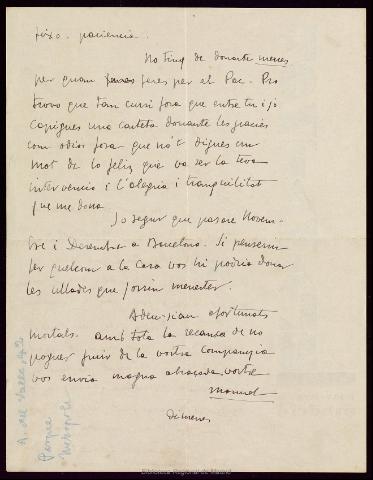 fixo. paciencia.
No tinc de donarte menes
per quan feres per el Pac. Pro
trovo que tan cursi fora que entre tu i jo
capigues una carteta donante les gracies
com odios fora que no't digues un
mot de lo feliç que va ser la teva
intervencio i l'alegria i tranquilitat
que me dona.
Jo segur que pasare Novem-
bre i Desembre a Barcelona. Si pensem
fer quelcom a la Casa vos hi podria donar
les ullades que forsin menester.
Adeu-siau afortunats
mortals. amb tota la recança de no
poguer fruir de la vostra companyia
vos envia magna abraçada vostre
Manuel
dimecres
A. del Valle, 42
Parque
Metropol.
Biblioteca Regional de Madrid